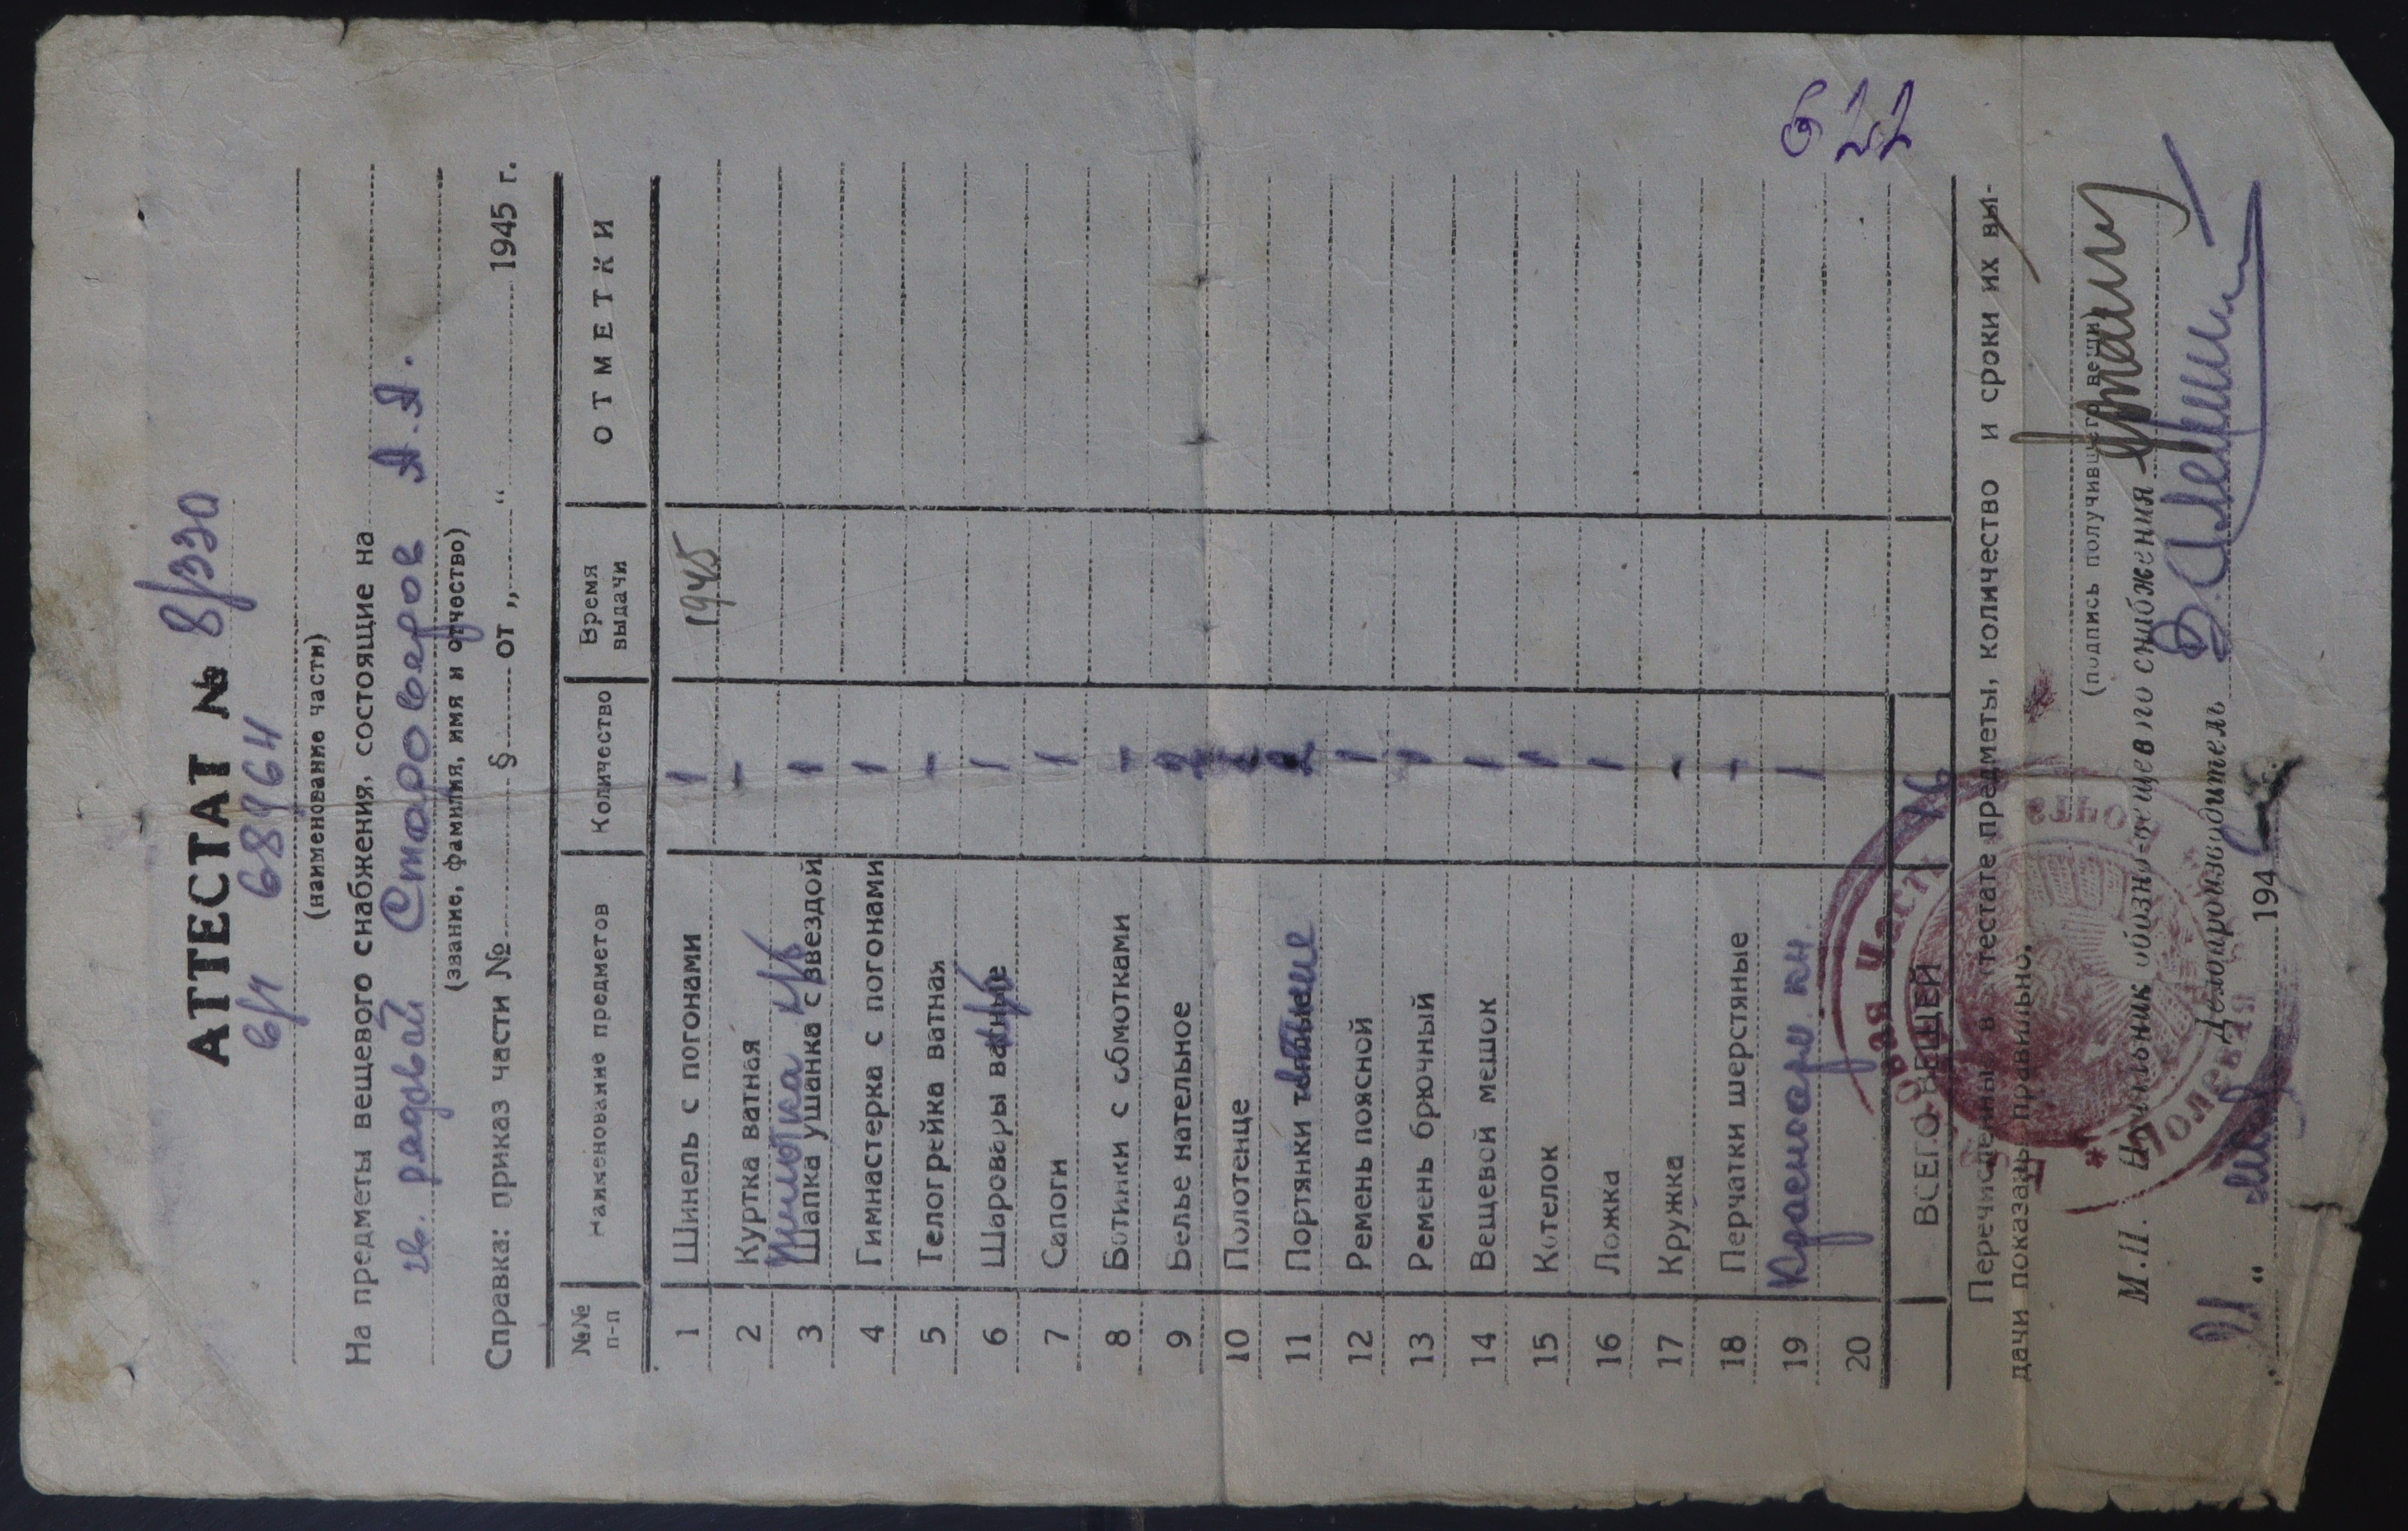 АТТЕСТАТ № 8/320
в/ч 68964
(наименование части)
На предметы вещевого снабжения, состоящие на
гв. рядовой Староверов А.А.
(звание, фамилия, имя и отчество)
Справка: приказ части № § от „ “ 1945 г.
№№ п-п Наименование предметов Количество Время выдачи ОТМЕТКИ
1 Шинель с погонами 1 1945
2 Куртка ватная -
3 Шапка ушанка с звездой х/б 1
4 Гимнастерка с погонами 1
5 Телогрейка ватная -
6 Шаровары ватные х/б 1
7 Сапоги 1
8 Ботинки с обмотками -
9 Белье нательное 2
10 Полотенце
11 Портянки теплые 2
12 Ремень поясной 1
13 Ремень брючный 1
14 Вещевой мешок 1
15 Котелок 1
16 Ложка 1
17 Кружка -
18 Перчатки шерстяные -
19 Красноарм. кн. 1
20
ВСЕГО ВЕЩЕЙ 16
622
Перечисленные в аттестате предметы, количество и сроки их вы-
дачи показаны правильно.
(подпись получившего вещи)
М.П. Начальник обозно-вещевого снабжения
Делопроизводитель
„ 21 “ 194
Полевая Почта